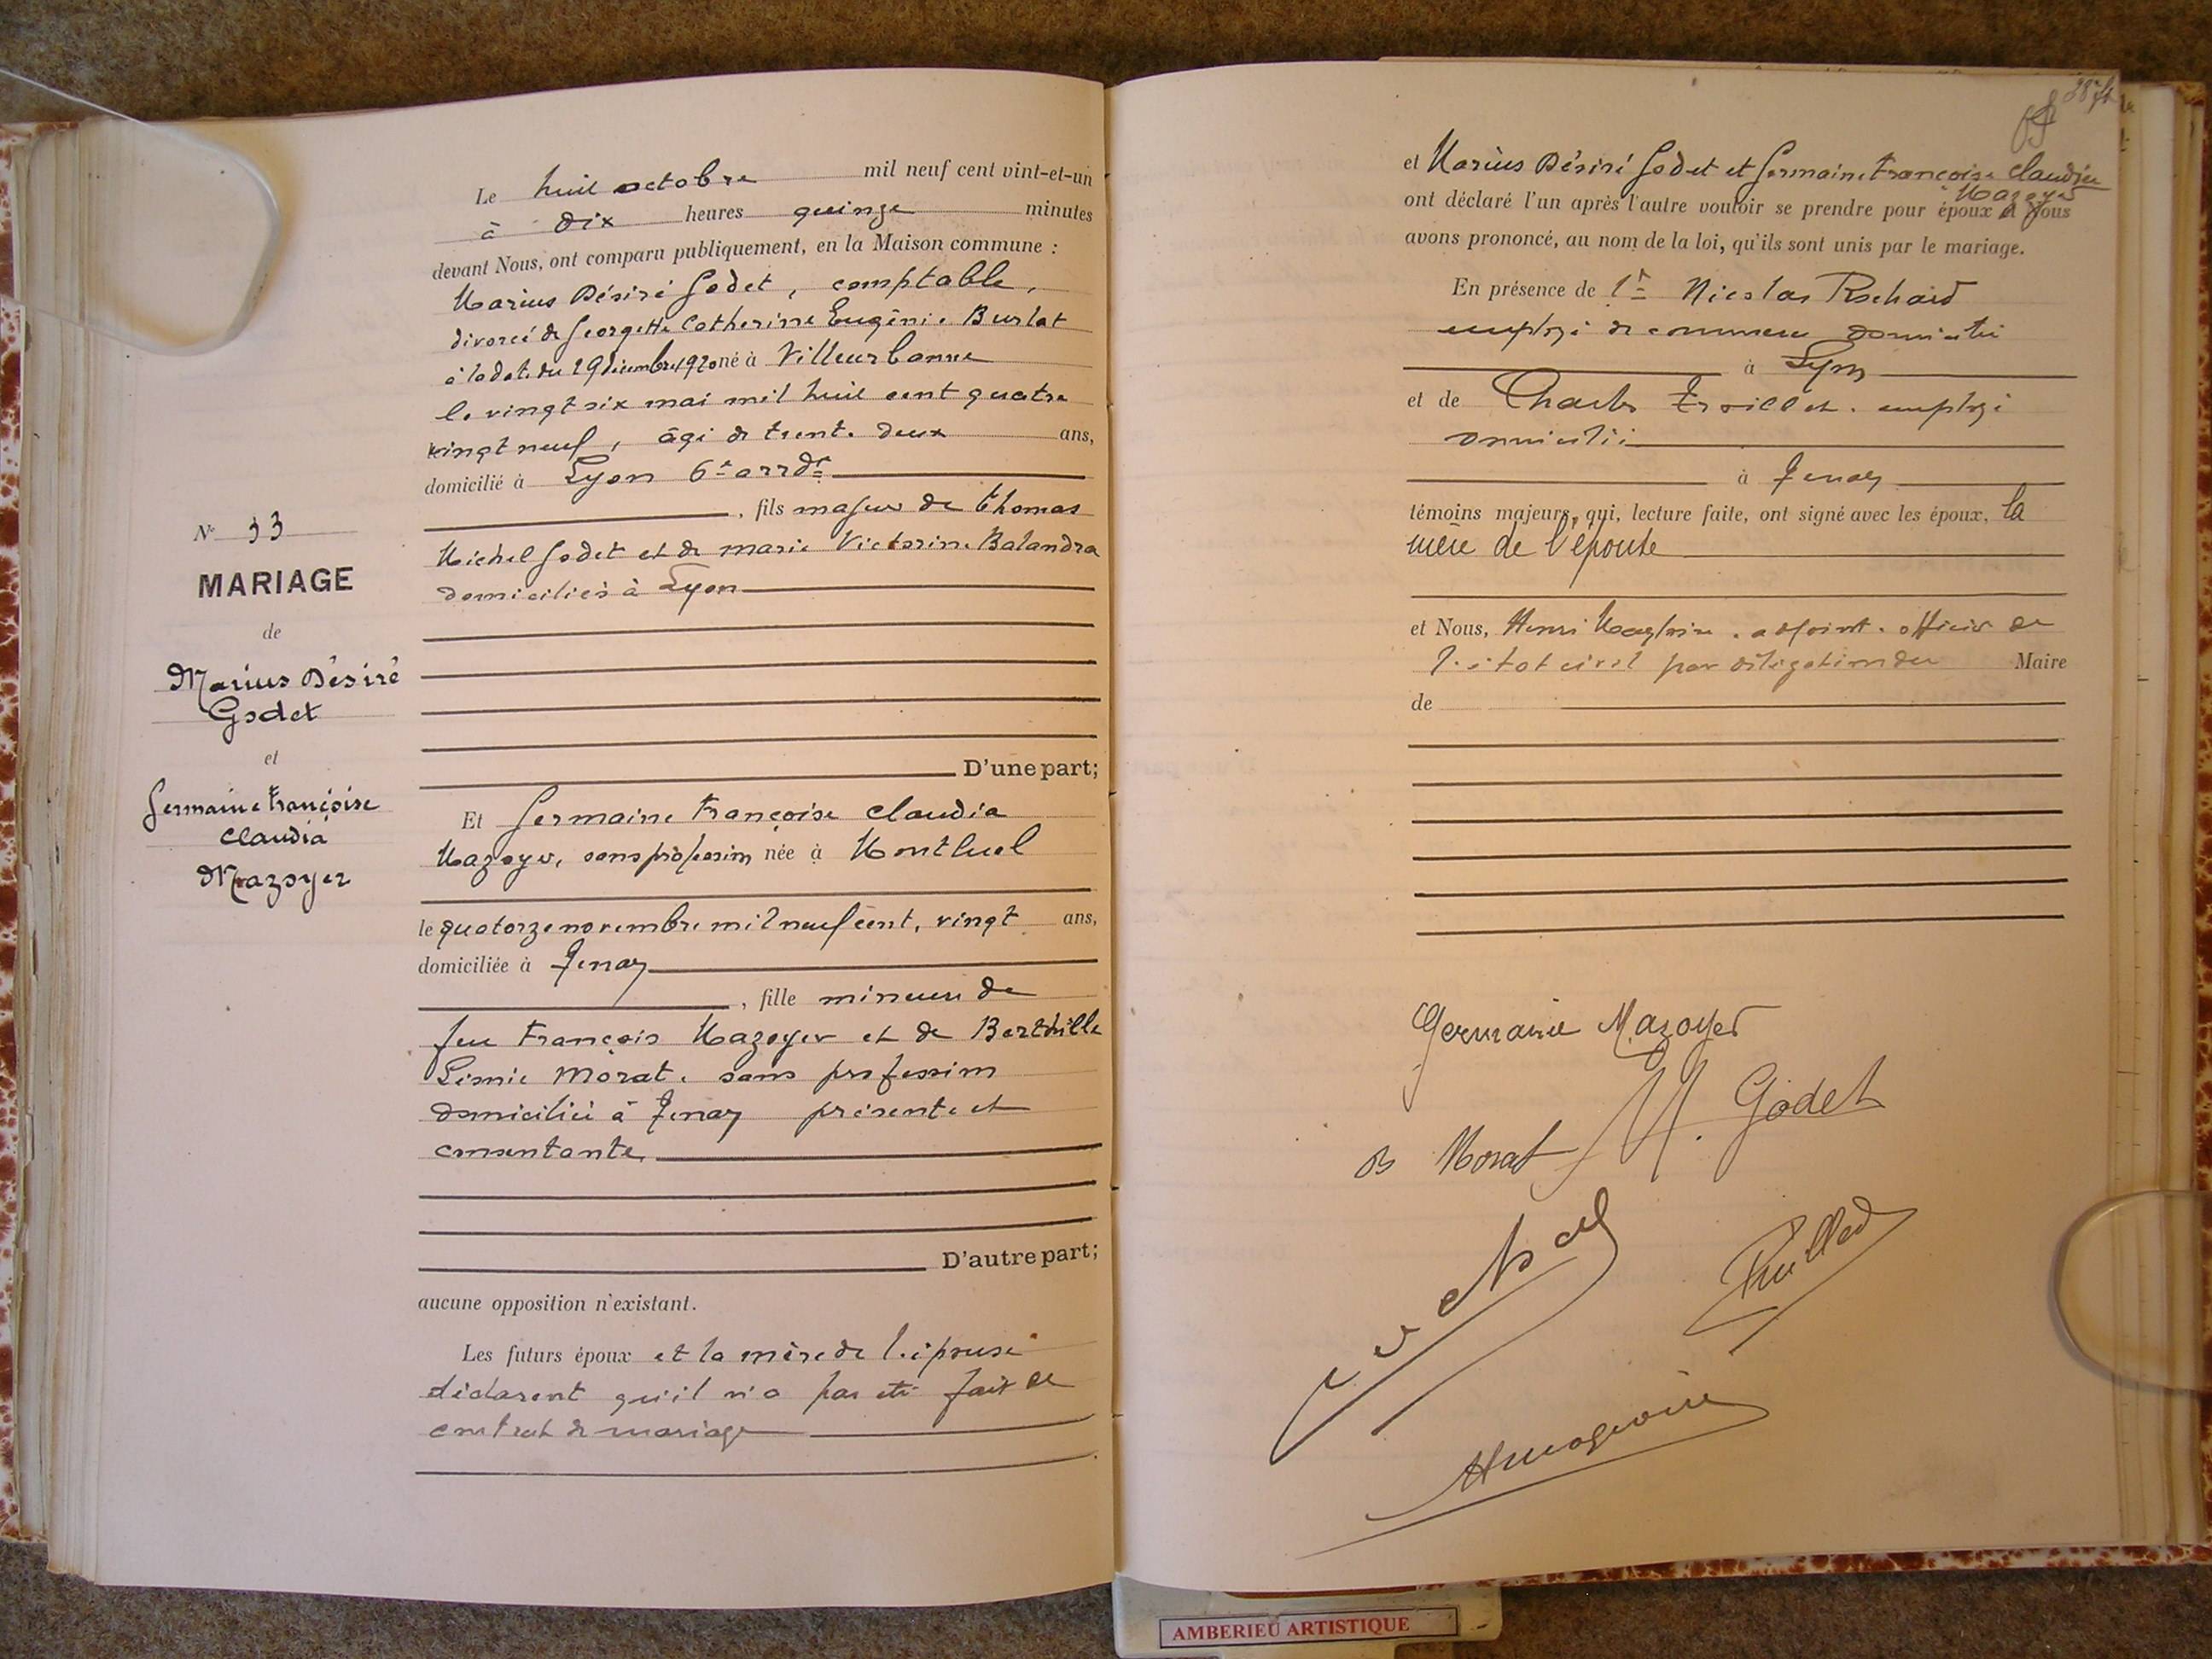 Le huit octobre mil neuf cent vint-et-un
à dix heures quinze minutes
devant Nous, ont comparu publiquement, en la Maison commune :
Marius Désiré Godet, comptable,
divorcé de Georgette Catherine Eugénie Burlat
à la date du 29 décembre 1920 né à Villeurbanne
le vingt six mai mil huit cent quatre
vingt neuf, âgé de trente deux ans,
domicilié à Lyon 6e arrdt
, fils majeur de Thomas
Michel Godet et de marie Victorine Balandra
domiciliés à Lyon
D'une part;
N° 33
MARIAGE
de
Marius Désiré
Godet
et
Germaine Françoise
Claudia
Mazoyer
Et Germaine Françoise Claudia
Mazoyer, sans profession née à Montluel
le quatorze novembre mil neuf cent, vingt ans,
domiciliée à Tenay
, fille mineure de
feu François Mazoyer et de Berthille
Morat, sans profession
domiciliée à Tenay présente et
consentante
D'autre part;
aucune opposition n'existant.
Les futurs époux et la mère de l'épouse
déclarent qu'il n'a pas été fait de
contrat de mariage
et Marius Désiré Godet et Germaine Françoise Claudia
Mazoyer
ont déclaré l'un après l'autre vouloir se prendre pour époux et Nous
avons prononcé, au nom de la loi, qu'ils sont unis par le mariage.
En présence de Nicolas Rochard
employé de commerce domicilié
à Lyon
et de Charles employé
domicilié
à Tenay
témoins majeurs, qui, lecture faite, ont signé avec les époux, la
mère de l'épouse
et Nous, Henri adjoint. officier de
l'état civil par délégation du Maire
de
Germaine Mazoyer
M. Godet
B Morat
AMBERIEU ARTISTIQUE